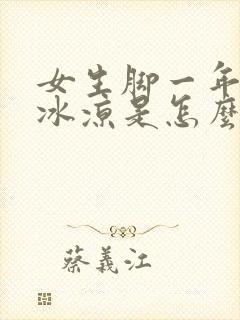 女生脚一年
冰凉是怎麼
蔡義江